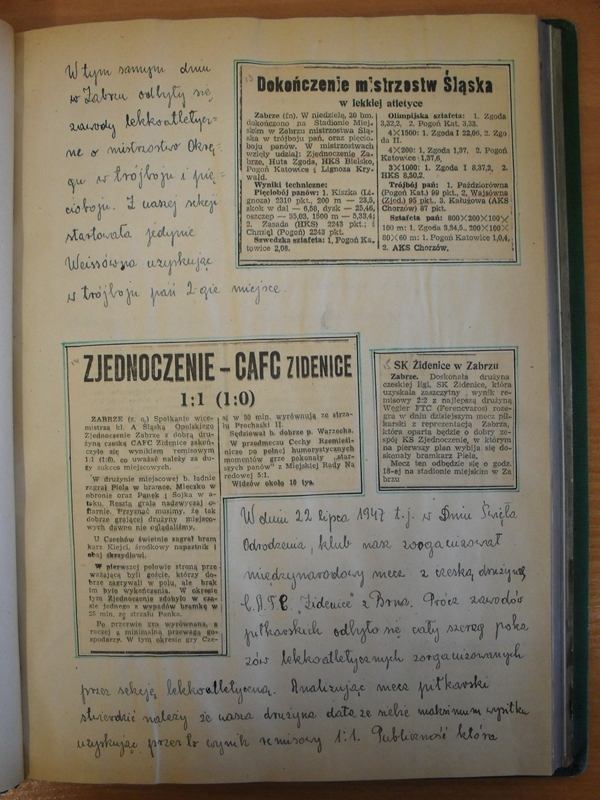 W tym samym dniu
w Zabrzu odbyły się
zawody lekkoatletycz-
ne o mistrzostwo Okrę-
gu w trójboju i pię-
cioboju. Z naszej sekcji
startowała jedynie
Weissówna uzyskując
w trójboju pań 2-gie miejsce.
Dokończenie mistrzostw Śląska
w lekkiej atletyce
Zabrze (fn). W niedzielę, 20 bm.
dokończono na Stadionie Miej-
skim w Zabrzu mistrzostwa Ślą-
ska w trójboju pań, oraz pięcio-
boju panów. W mistrzostwach
wzięły udział: Zjednoczenie Za-
brze, Huta Zgoda, HKS Bielsko,
Pogoń Katowice i Lignoza Kry-
wałd.
Wyniki techniczne:
Pięciobój panów: 1. Kiszka (Li-
gnoza) 2310 pkt., 200 m — 23,5,
skok w dal — 6,58, dysk — 25,46,
oszczep — 35,03, 1500 m — 5,33,4;
2. Zasada (HKS) 2243 pkt.; i
Chmiel (Pogoń) 2243 pkt.
Szwedzka sztafeta: 1. Pogoń Ka-
towice 2,08.
Olimpijska sztafeta: 1. Zgoda
3,32,2, 2. Pogoń Kat. 3,33.
4×1500: 1. Zgoda I 22,06, 2. Zgo-
da II.
4×200: 1. Zgoda 1,37, 2. Pogoń
Katowice 1,37,6,
3×1000: 1. Zgoda I 8,37,2, 2.
HKS 8,50,2.
Trójbój pań: 1. Paździorówna
(Pogoń Kat.) 99 pkt., 2. Wajsówna
(Zjed.) 95 pkt., 3. Kałużowa (AKS
Chorzów) 87 pkt.
Sztafeta pań: 800×200×100×
100 m: 1. Zgoda 3,34,5, 200×100×
80×60 m: 1. Pogoń Katowice 1,0,4,
2. AKS Chorzów.
ZJEDNOCZENIE – CAFC ZIDENICE
1:1 (1:0)
ZABRZE (z. q.) Spotkanie wice-
mistrza kl. A Śląska Opolskiego
Zjednoczenie Zabrze z dobrą dru-
żyną czeską CAFC Zidenice zakoń-
czyło się wynikiem remisowym
1:1 (1:0), co uważać należy za du-
ży sukces miejscowych.
W drużynie miejscowej b. ładnie
zagrał Piela w bramce, Mieczko w
obronie oraz Panek i Sojka w a-
taku. Reszta grała nadzwyczaj o-
fiarnie. Przyznać musimy, że tak
dobrze grającej drużyny miejsco-
wych dawno nie oglądaliśmy.
U Czechów świetnie zagrał bram
karz Klejci, środkowy napastnik i
obaj skrzydłowi.
W pierwszej połowie stroną prze-
ważającą byli goście, którzy do-
brze zagrywali w polu, ale brak
im było wykończenia. W okresie
tym Zjednoczenie zdobyło w cza-
sie jednego z wypadów bramkę w
25 min. ze strzału Panka.
Po przerwie gra wyrównana, a
raczej z minimalną przewagą go-
spodarzy. W tym okresie gry Cze-
si w 90 min. wyrównują ze strza-
łu Prochaski II.
Sędziował b. dobrze p. Warzecha.
W przedmeczu Cechy Rzemieśl-
nicze po pełnej humorystycznych
momentów grze pokonały „star-
szych panów" z Miejskiej Rady Na
rodowej 5:1.
Widzów około 10 tys.
SK Židenice w Zabrzu
Zabrze. Doskonała drużyna
czeskiej ligi, SK Židenice, która
uzyskała zaszczytny wynik re-
misowy 2:2 z najlepszą drużyną
Węgier FTC (Ferencvaros) roze-
gra w dniu dzisiejszym mecz pił-
karski z reprezentacją Zabrza,
która oparta będzie o dobry ze-
spół KS Zjednoczenie, w którym
na pierwszy plan wybija się do-
skonały bramkarz Piela.
Mecz ten odbędzie się o godz.
18-ej na stadionie miejskim w Za
brzu
W dniu 22 lipca 1947 t.j. w Dniu Święta
Odrodzenia, klub nasz zoorganizował
międzynarodowy mecz z czeską drużyną
C.A.F.C. „Zidenice" z Brna. Prócz zawodów
piłkarskich odbyło się cały szereg poka
zów lekkoatletycznych zorganizowanych
przez sekcję lekkoatletyczną. Analizując mecz piłkarski
stwierdzić należy że nasza drużyna dała ze siebie maksimum wysiłku
uzyskując przez to wynik remisowy 1:1. Publiczność która